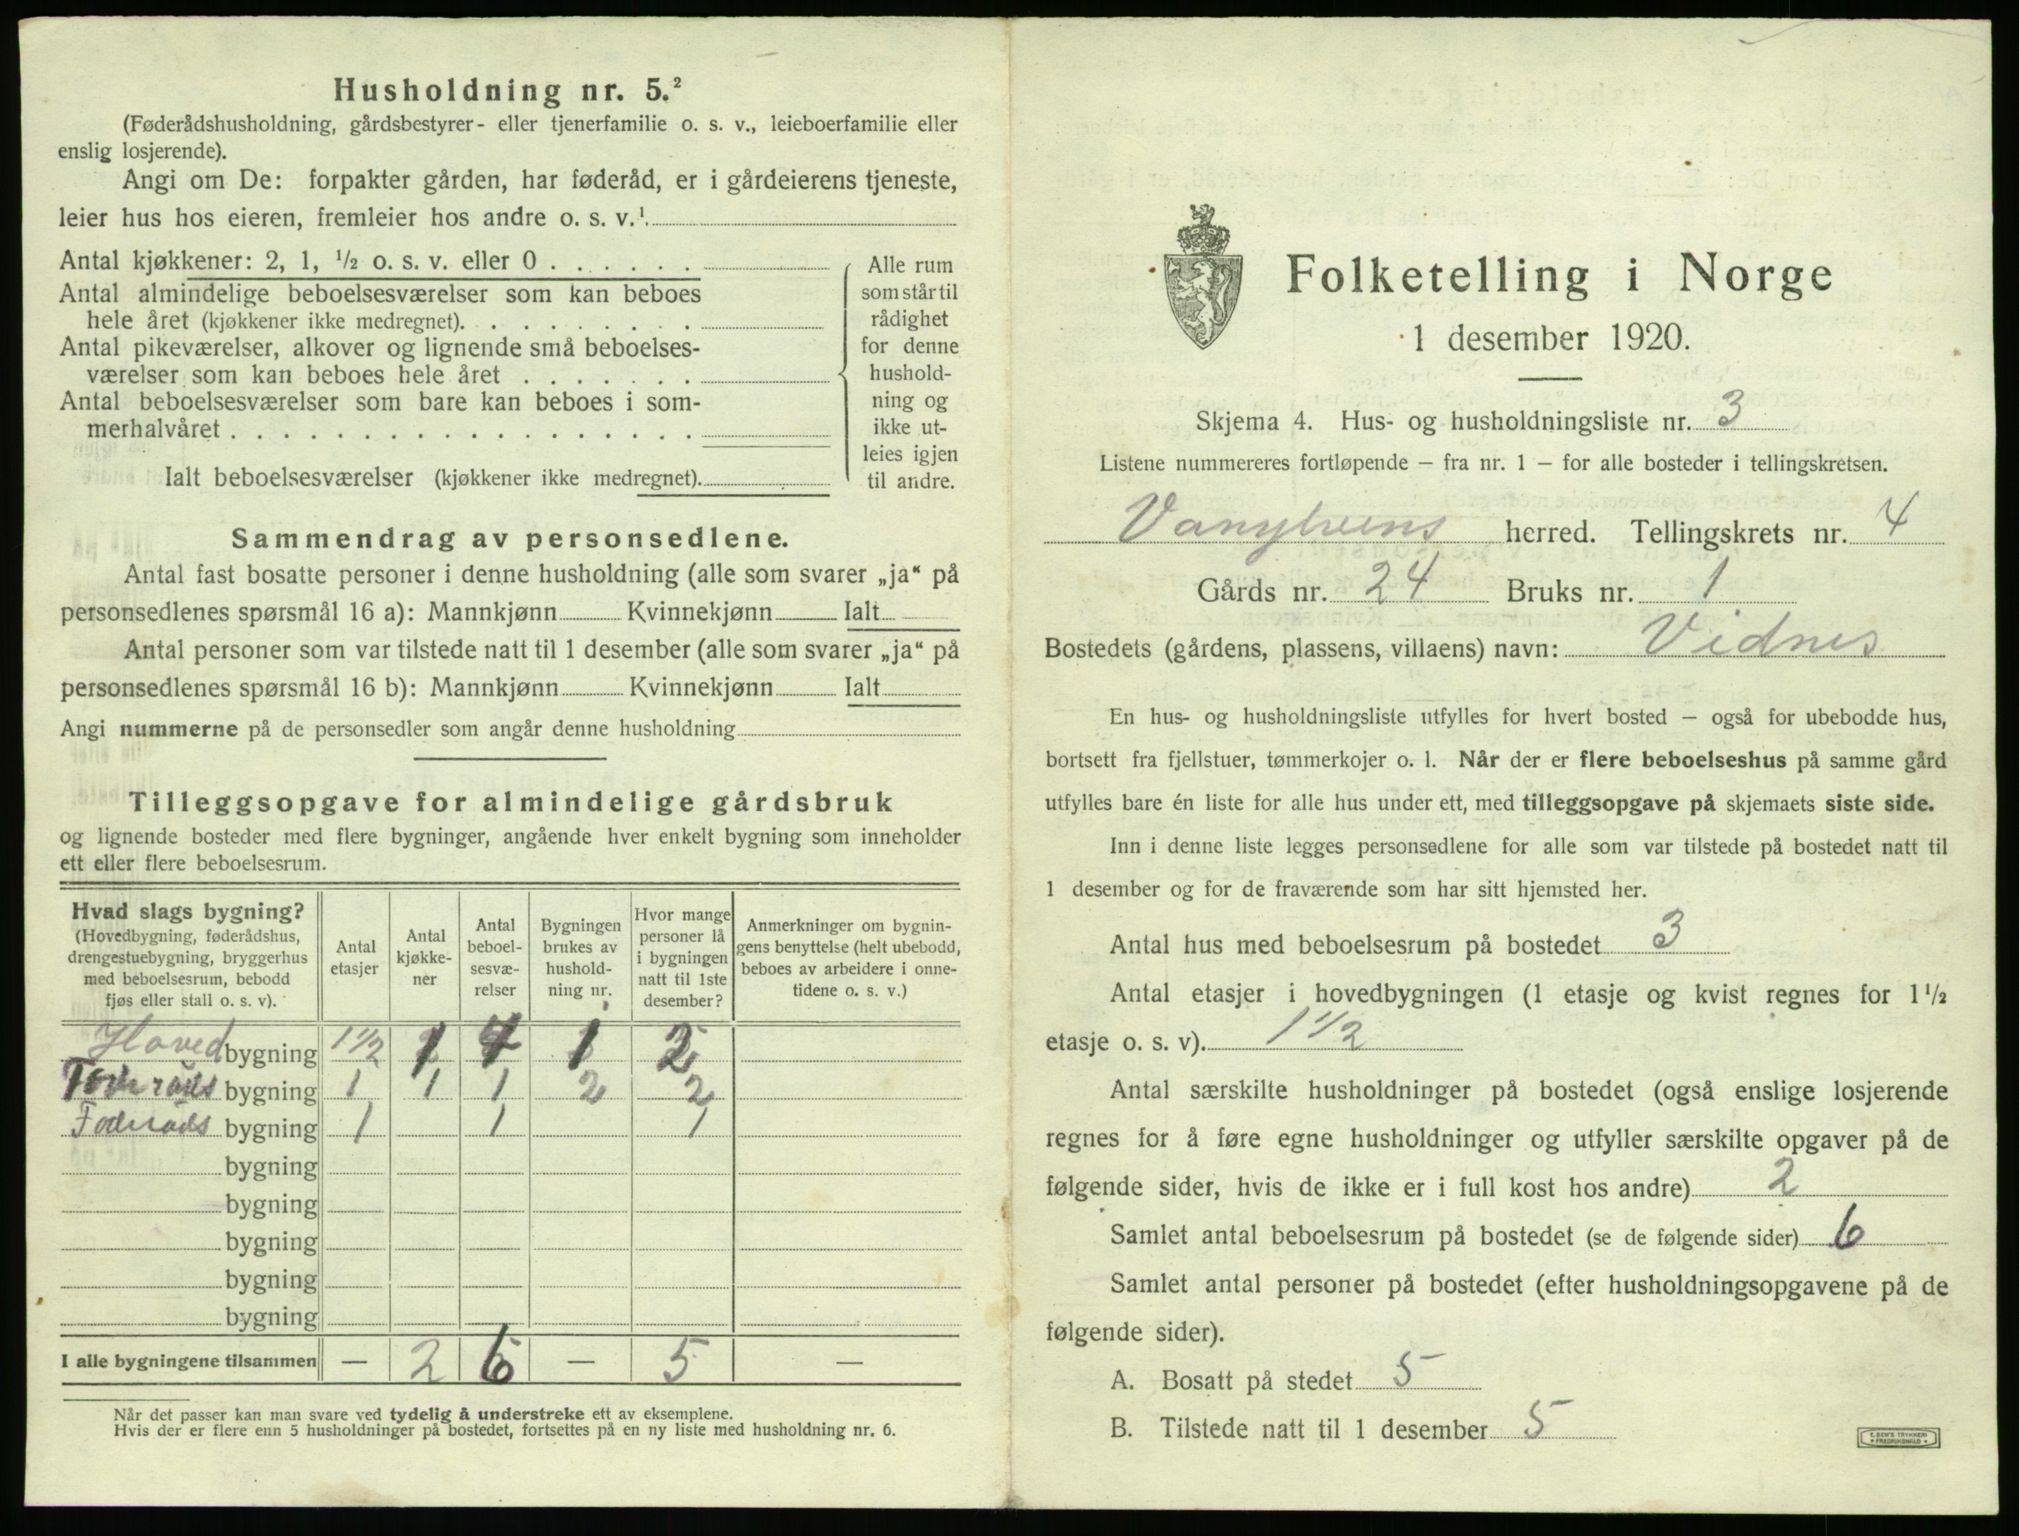 Husholdning nr. 5.²
(Føderådshusholdning, gårdsbestyrer- eller tjenerfamilie o. s. v., leieboerfamilie eller
enslig losjerende).
Angi om De: forpakter gården, har føderåd, er i gårdeierens tjeneste,
leier hus hos eieren, fremleier hos andre o. s. v.¹
Antal kjøkkener: 2, 1, ½ o. s. v. eller 0 . . . . . .
Antal almindelige beboelsesværelser som kan beboes
hele året (kjøkkener ikke medregnet). . . . . . . . .
Antal pikeværelser, alkover og lignende små beboelses-
værelser som kan beboes hele året . . . . . . .
Antal beboelsesværelser som bare kan beboes i som-
merhalvåret . . . . . . . . . . . . . . . . . .
Ialt beboelsesværelser (kjøkkener ikke medregnet).
Alle rum
som står til
rådighet
for denne
hushold-
ning og
ikke ut-
leies igjen
til andre.
Sammendrag av personsedlene.
Antal fast bosatte personer i denne husholdning (alle som svarer „ja“ på
personsedlenes spørsmål 16 a): Mannkjønn Kvinnekjønn Ialt
Antal personer som var tilstede natt til 1 desember (alle som svarer „ja“ på
personsedlenes spørsmål 16 b): Mannkjønn Kvinnekjønn Ialt
Angi nummerne på de personsedler som angår denne husholdning
Tilleggsopgave for almindelige gårdsbruk
og lignende bosteder med flere bygninger, angående hver enkelt bygning som inneholder
ett eller flere beboelsesrum.
Hvad slags bygning?
(Hovedbygning, føderådshus,
drengestuebygning, bryggerhus
med beboelsesrum, bebodd
fjøs eller stall o. s. v).
Antal
etasjer
Antal
kjøkke-
ner
Antal
beboel-
sesvæ-
relser
Bygningen
brukes av
hushold-
ning nr.
Hvor mange
personer lå
i bygningen
natt til 1ste
desember?
Anmerkninger om bygnin-
gens benyttelse (helt ubebodd,
beboes av arbeidere i onne-
tidene o. s. v.)
Hoved bygning 1½ 1 4 1 2
Føderåds bygning 1 1 1 2 2
Føderåds bygning 1 1 1
bygning
bygning
bygning
bygning
bygning
I alle bygningene tilsammen — 2 6 — 5 —
Når det passer kan man svare ved tydelig å understreke ett av eksemplene.
Hvis der er flere enn 5 husholdninger på bostedet, fortsettes på en ny liste med husholdning nr. 6.
Folketelling i Norge
1 desember 1920.
Skjema 4. Hus- og husholdningsliste nr. 3
Listene nummereres fortløpende – fra nr. 1 – for alle bosteder i tellingskretsen.
Vanylvens herred. Tellingskrets nr. 4
Gårds nr. 24 Bruks nr. 1
Bostedets (gårdens, plassens, villaens) navn: Vidnes
En hus- og husholdningsliste utfylles for hvert bosted – også for ubebodde hus,
bortsett fra fjellstuer, tømmerkojer o. l. Når der er flere beboelseshus på samme gård
utfylles bare én liste for alle hus under ett, med tilleggsopgave på skjemaets siste side.
Inn i denne liste legges personsedlene for alle som var tilstede på bostedet natt til
1 desember og for de fraværende som har sitt hjemsted her.
Antal hus med beboelsesrum på bostedet 3
Antal etasjer i hovedbygningen (1 etasje og kvist regnes for 1½
etasje o. s. v). 1½
Antal særskilte husholdninger på bostedet (også enslige losjerende
regnes for å føre egne husholdninger og utfyller særskilte opgaver på de
følgende sider, hvis de ikke er i full kost hos andre) 2
Samlet antal beboelsesrum på bostedet (se de følgende sider) 6
Samlet antal personer på bostedet (efter husholdningsopgavene på de
følgende sider).
A. Bosatt på stedet 5
B. Tilstede natt til 1 desember 5